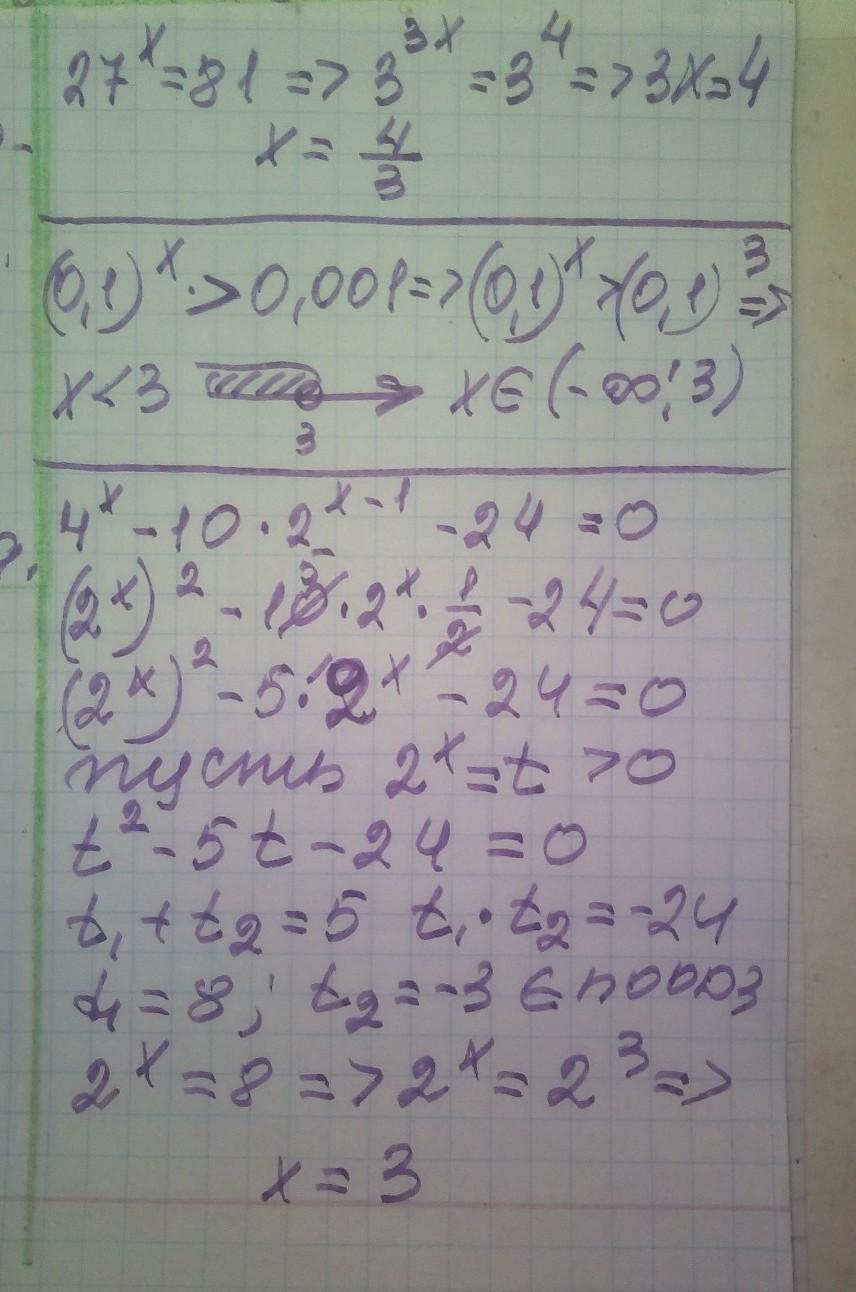 27^x = 81 => 3^{3x} = 3^4 => 3x = 4
x = 4/3
(0,1)^x > 0,001 => (0,1)^x > (0,1)^3 =>
x < 3 3 x ∈ (-∞; 3)
4^x - 10 · 2^{x-1} - 24 = 0
(2^x)^2 - 10 · 2^x · 1/2 - 24 = 0
(2^x)^2 - 5 · 2^x - 24 = 0
пусть 2^x = t > 0
t^2 - 5t - 24 = 0
t₁ + t₂ = 5 t₁ · t₂ = -24
t₁ = 8; t₂ = -3 ∈ по ОДЗ
2^x = 8 => 2^x = 2^3 =>
x = 3